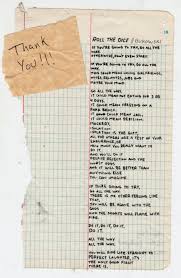 Thank
You!!!
ROLL THE DICE / BUKOWSKI
IF YOU'RE GOING TO TRY, GO ALL THE
WAY.
OTHERWISE, DON'T EVEN START.
IF YOU'RE GOING TO TRY, GO ALL THE
WAY. THIS
COULD MEAN LOSING GIRLFRIENDS,
WIVES, RELATIVES, JOBS AND
MAYBE YOUR MIND.
GO ALL THE WAY.
IT COULD MEAN NOT EATING FOR 3 OR
4 DAYS.
IT COULD MEAN FREEZING ON A
PARK BENCH.
IT COULD MEAN JAIL,
IT COULD MEAN DERISION,
MOCKERY,
ISOLATION.
ISOLATION IS THE GIFT,
ALL THE OTHERS ARE A TEST OF YOUR
ENDURANCE, OF
HOW MUCH YOU REALLY WANT TO
DO IT.
AND YOU'LL DO IT
DESPITE REJECTION AND THE
WORST ODDS
AND IT WILL BE BETTER THAN
ANYTHING ELSE
YOU CAN IMAGINE.
IF YOU'RE GOING TO TRY,
GO ALL THE WAY.
THERE IS NO OTHER FEELING LIKE
THAT.
YOU WILL BE ALONE WITH THE
GODS
AND THE NIGHTS WILL FLAME WITH
FIRE.
DO IT, DO IT, DO IT.
DO IT.
ALL THE WAY
ALL THE WAY.
YOU WILL RIDE LIFE STRAIGHT TO
PERFECT LAUGHTER, IT'S
THE ONLY GOOD FIGHT
THERE IS.